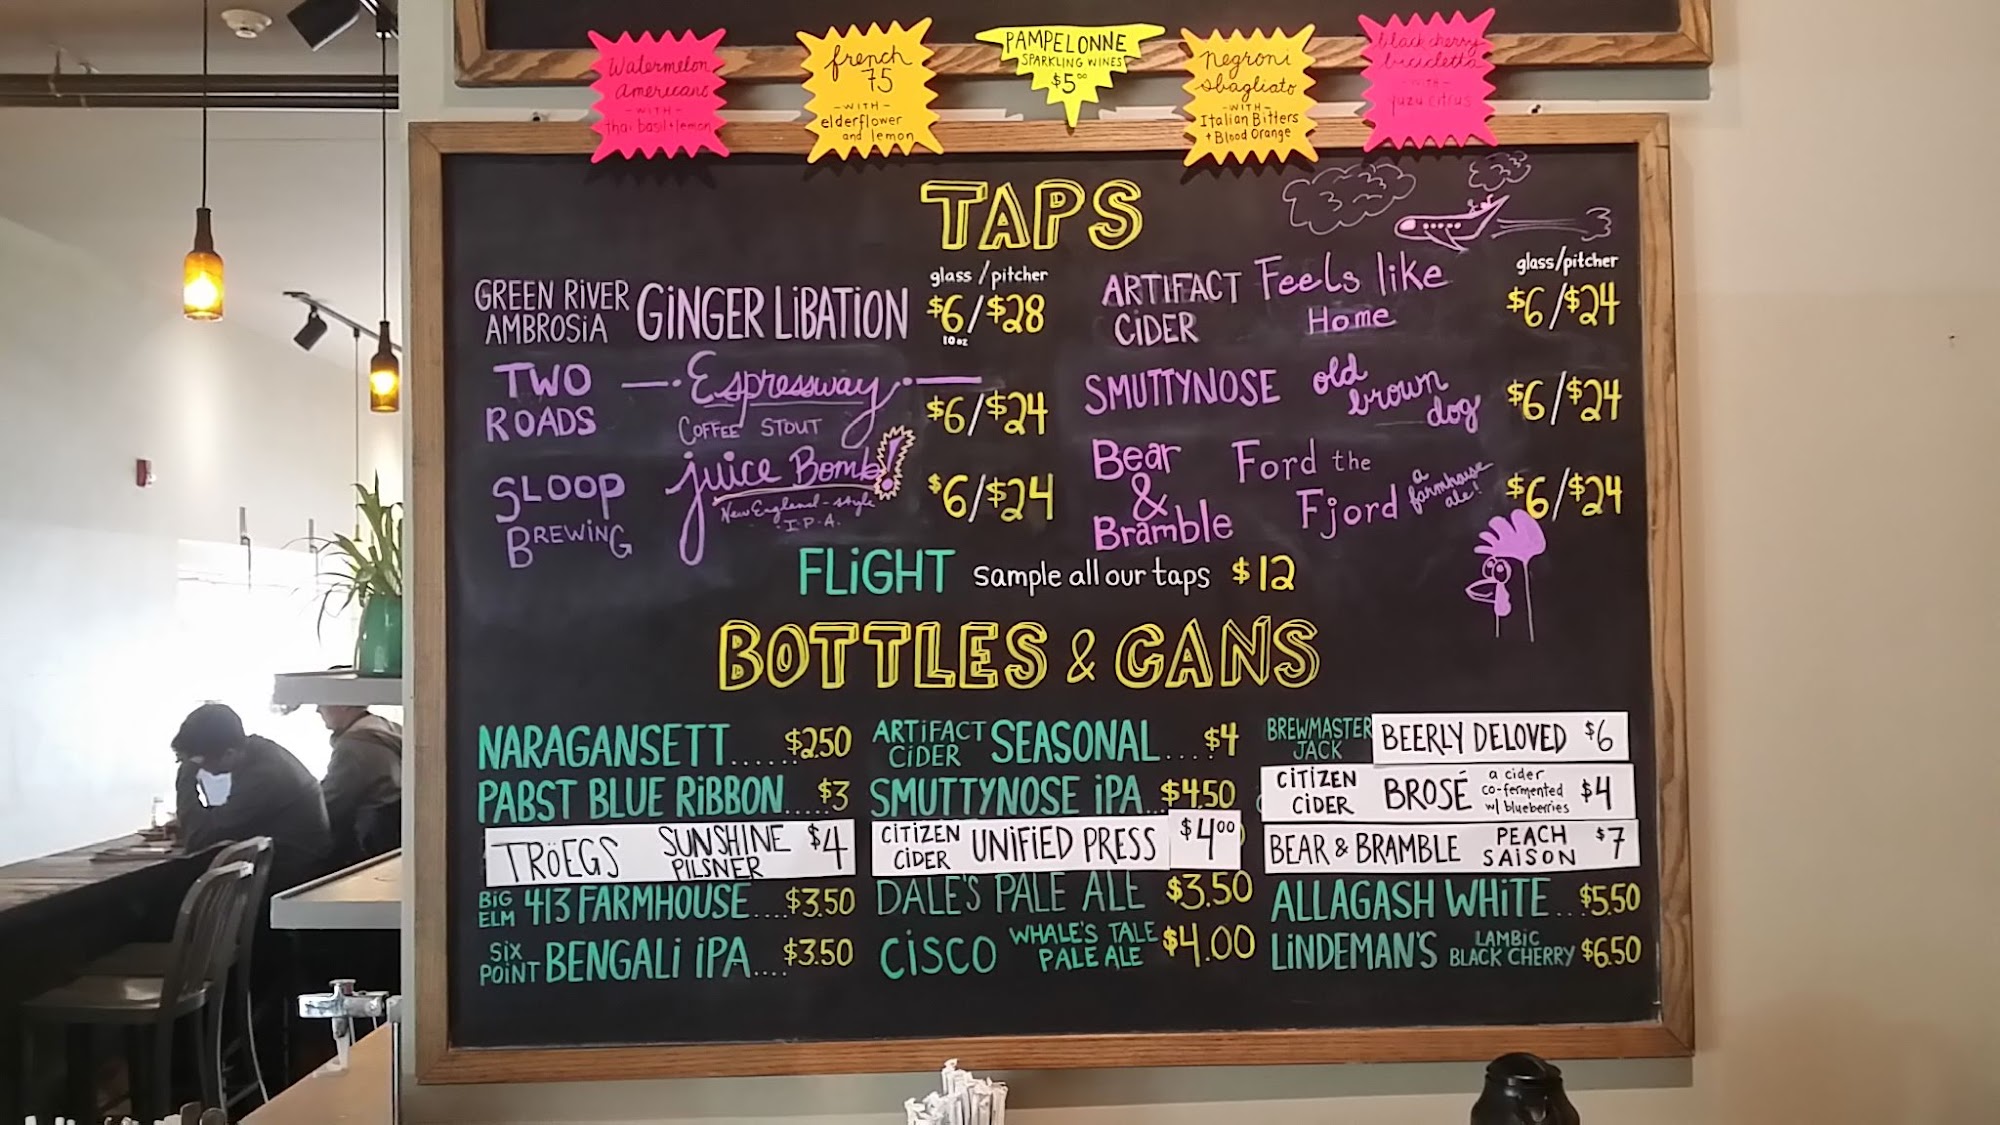 Watermelon
americano
- WITH -
thai basil + lemon
french
75
- WITH -
elderflower
and lemon
PAMPELONNE
SPARKLING WINES
$5⁰⁰
negroni
sbagliato
- WITH -
Italian Bitters
+ Blood Orange
black cherry
bicicletta
- WITH -
yuzu citrus
TAPS
glass/pitcher
GREEN RIVER
AMBROSIA
GINGER LIBATION
$6/$28
10 oz
TWO
ROADS
Espressway
COFFEE STOUT
$6/$24
SLOOP
BREWING
juice Bomb!
New England-style
I.P.A.
$6/$24
glass/pitcher
ARTIFACT
CIDER
Feels like
Home
$6/$24
SMUTTYNOSE
old
brown
dog
$6/$24
Bear
&
Bramble
Ford the
Fjord
a
farmhouse
ale!
$6/$24
FLIGHT sample all our taps $12
BOTTLES & CANS
NARAGANSETT...... $2.50
PABST BLUE RIBBON.... $3
TRÖEGS SUNSHINE
PILSNER $4
BIG
ELM 413 FARMHOUSE.... $3.50
SIX
POINT BENGALI IPA.... $3.50
ARTIFACT
CIDER SEASONAL.... $4
SMUTTYNOSE IPA... $4.50
CITIZEN
CIDER UNIFIED PRESS $4⁰⁰
DALE'S PALE ALE $3.50
CISCO WHALE'S TALE
PALE ALE $4.00
BREWMASTER
JACK BEERLY DELOVED $6
CITIZEN
CIDER BROSÉ a cider
co-fermented
w/ blueberries $4
BEAR & BRAMBLE PEACH
SAISON $7
ALLAGASH WHITE... $5.50
LINDEMAN'S LAMBIC
BLACK CHERRY $6.50